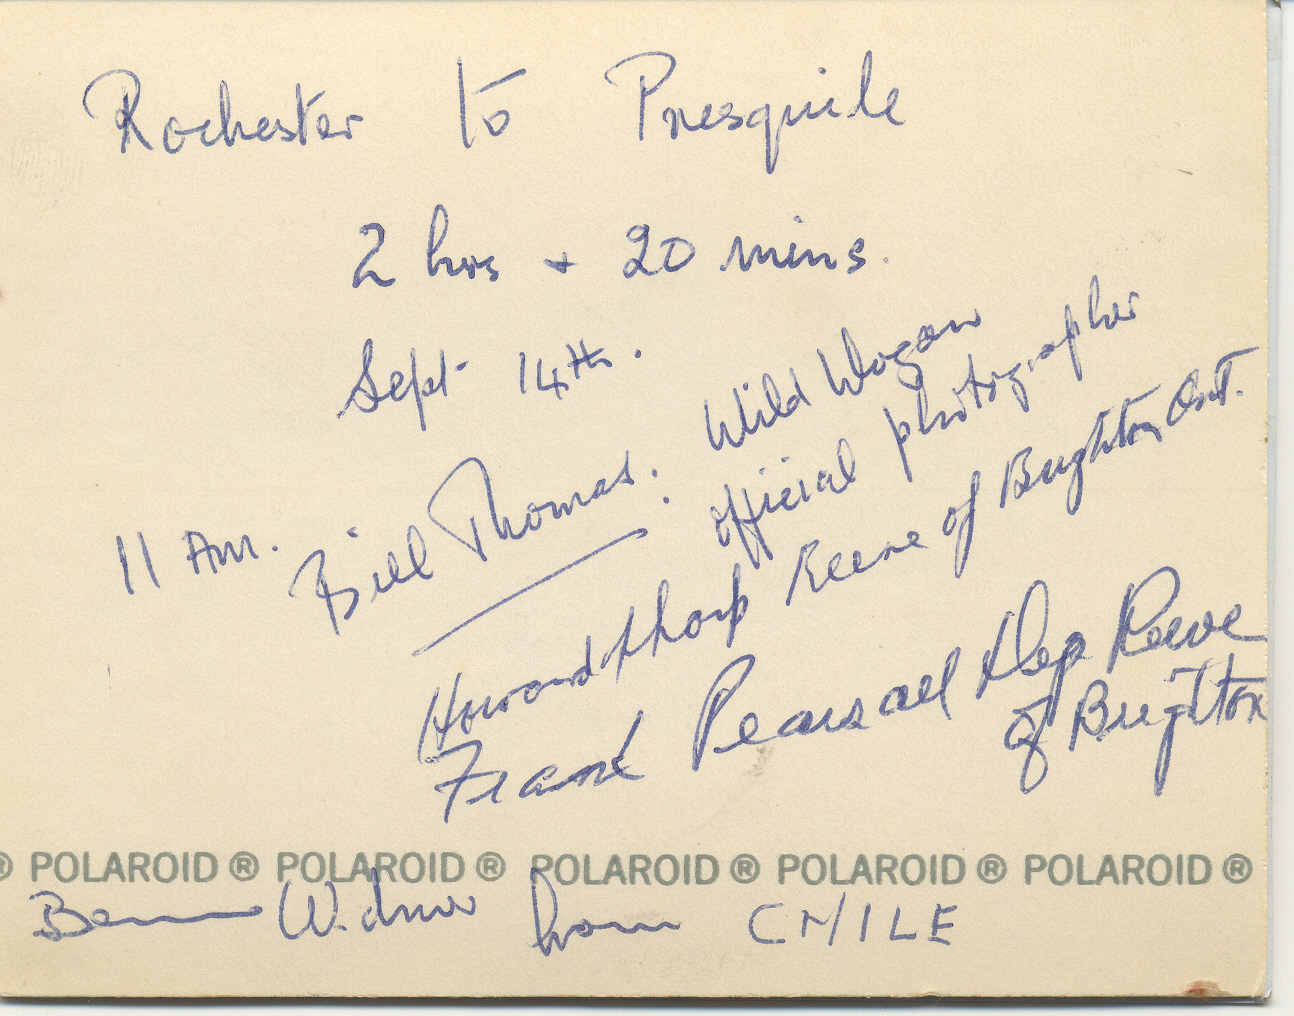 Rochester to Presquile
2 hrs + 20 mins.
Sept 14th.
11 Am.
Bill Thomas. Wild Wogan
official photographer
Howard Thorp Reeve of Brighton Ont.
Frank Pearsall Dep Reeve
of Brighton
® POLAROID ® POLAROID ® POLAROID ® POLAROID ® POLAROID ®
from CHILE